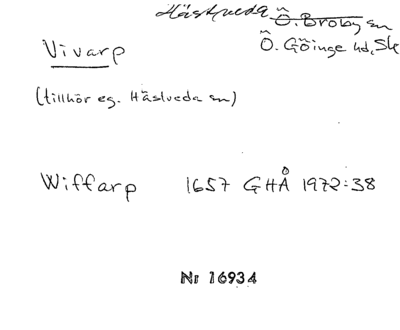 Hästveda Ö. Broby sn
Vivarp
Ö. Göinge hd, Sk
(tillhör eg. Hästveda sn)
Wiffarp 1657 GHÅ 1972:38
Nr 16934